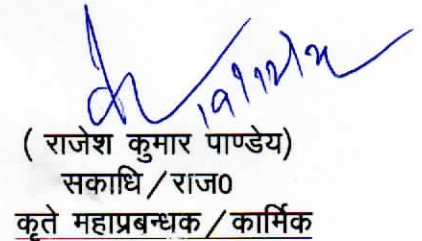 ( राजेश कुमार पाण्डेय)
सकाधि / राज0
कृते महाप्रबन्धक / कार्मिक